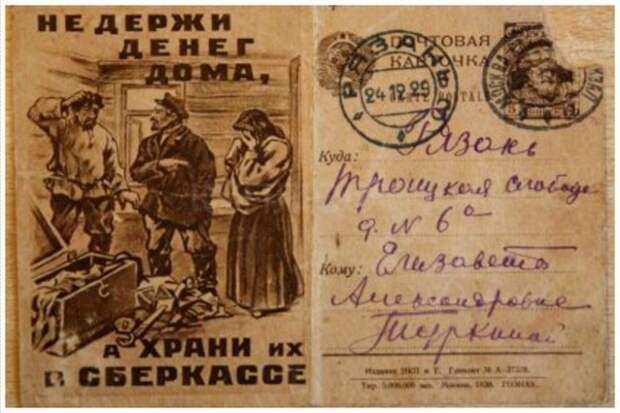 НЕ ДЕРЖИ
ДЕНЕГ
ДОМА,
А ХРАНИ ИХ
В СБЕРКАССЕ
ПОЧТОВАЯ
КАРТОЧКА
POSTALE
РЯЗАНЬ
24.12.29
МОСКВА
Куда: Рязань
Троицкая слобода
д. N 6а
Кому: Елизавета
Александровне
Туркиной
Издание НКП и Т. Главлит № А-
Тир. 5.000.000 экз. Москва, ГОЗНАК.